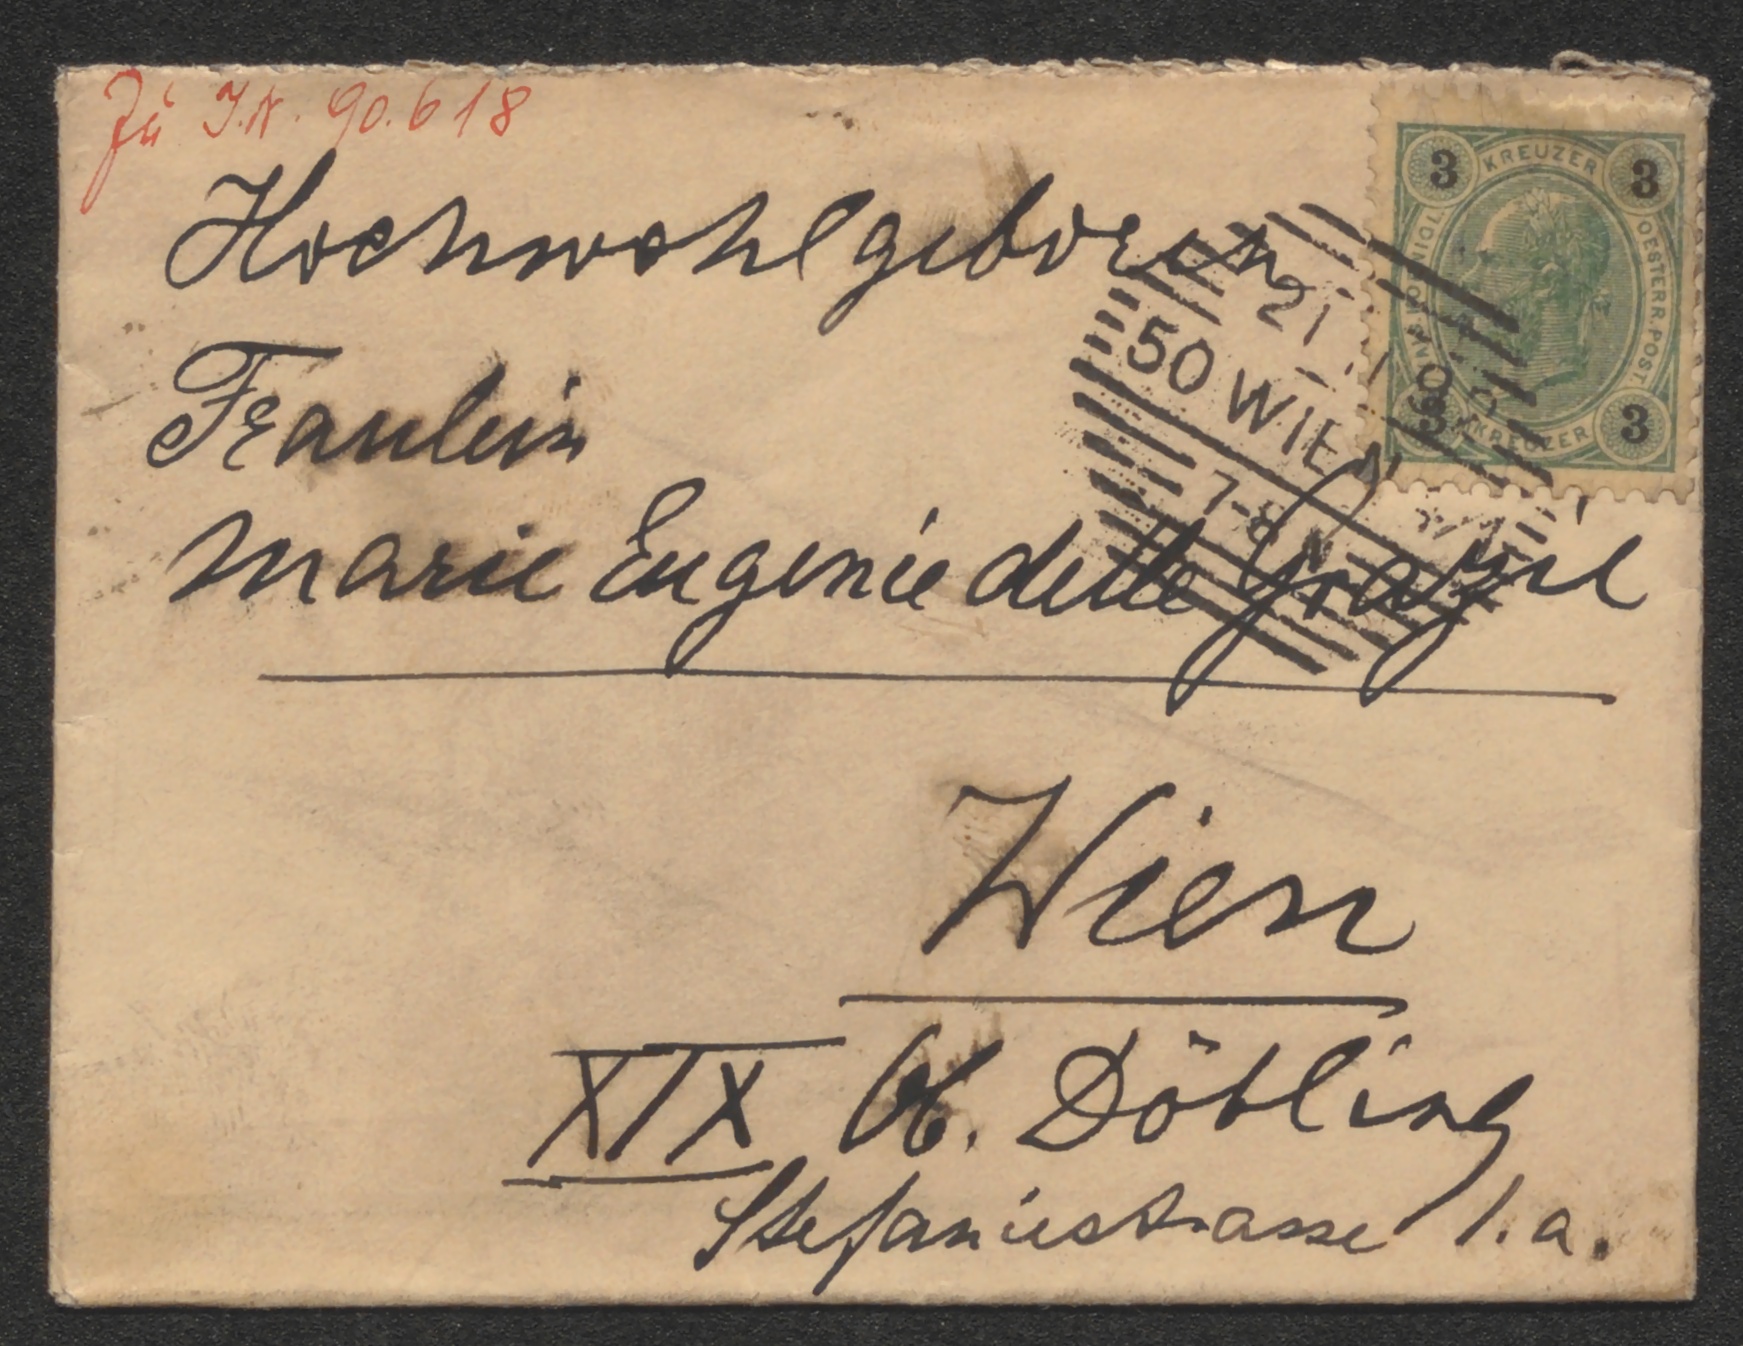 Zu I.N. 90.618
Hochwohlgeboren
Fräulein
Marie Eugenie delle Grazie
Wien
XIX Ob. Döbling
Stefaniestrasse 1.a.
3 KREUZER 3
OESTERR. POST
3 KREUZER 3
21
50 WIEN
7-8 N